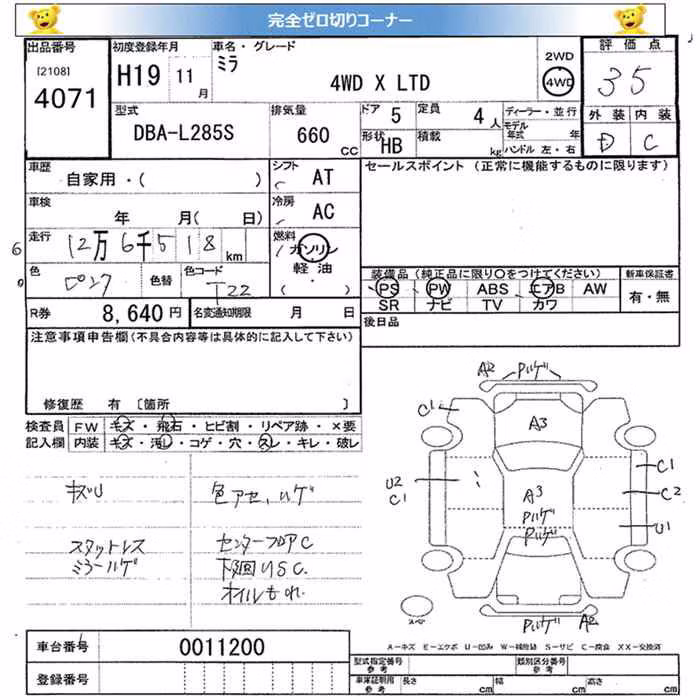 完全ゼロ切りコーナー
出品番号 初度登録年月 車名・グレード 2WD 評価点
[2108] H19 11月 ミラ 4WD 35
4071 4WD X LTD
型式 排気量 ドア 5 定員 4人 ディーラー・並行 外装 内装
DBA-L285S 660 CC 形状 HB 積載 kg モデル年式 年 D C
ハンドル 左・右
車歴 シフト セールスポイント(正常に機能するものに限ります)
自家用・( ) AT
車検 冷房
年 月( 日) AC
走行 12万6千518km 燃料 ガソリン
軽油
(・)
色 色替 色コード 装備品(純正品に限り○をつけてください) 新車保証書
ピンク T22 PS PW ABS エアB AW 有・無
SR ナビ TV カワ
R券 8,640円 名変通知期限 月 日 後日品
注意事項申告欄(不具合内容等は具体的に記入して下さい)
修復歴 有 〔箇所 〕
検査員 FW キズ・飛石・ヒビ割・リペア跡・×要
記入欄 内装 キズ・汚れ・コゲ・穴・スレ・キレ・破レ
キズU 色アセ、ハゲ
スタットレス センターフロアC
ミラーハゲ 下回りSC.
オイルもれ
A2 Pハゲ
C1 A3
C1
U2
C1 C2
A3
Pハゲ
Pハゲ U1
スペア Pハゲ A2
A－キズ E－エクボ U－凹み W－補修跡 S－サビ C－腐食 XX－交換済
車台番号 0011200
登録番号
型式指定番号 参考 類別区分番号 参考
車庫証明用 参考 長さ cm 幅 cm 高さ cm